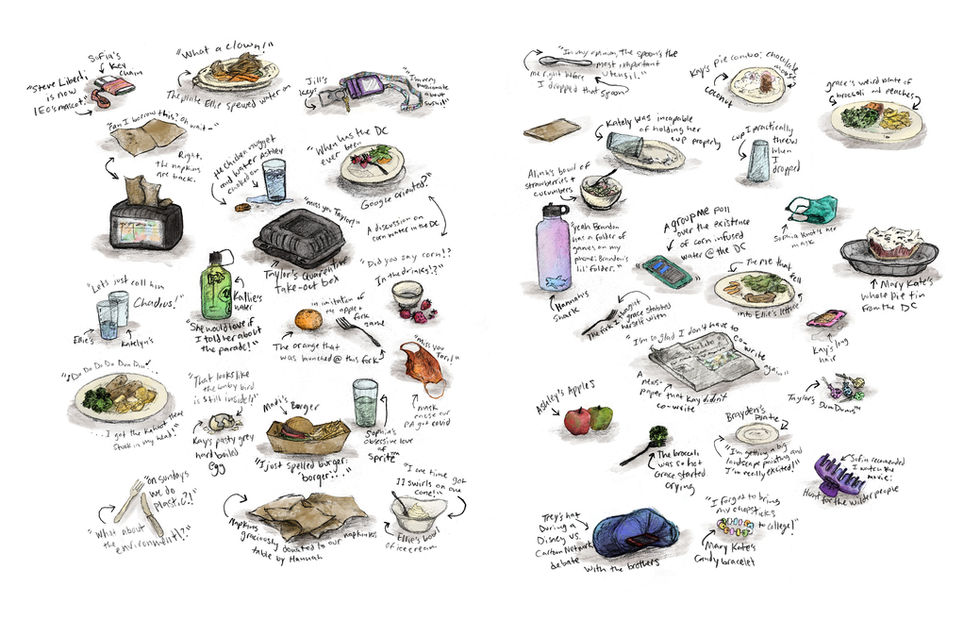 Sofia's
key
chain
"Steve Liberdi
is now
IEO's mascot!"
"What a clown!"
The plate Ellie spewed water on
Jill's
keys
"I'm very
passionate
about
sushi!"
"Can I borrow this? Oh wait-"
Right,
the napkins
are back.
The chicken nugget
mid water
choked on
"When has the DC
ever been
Google oriented?"
A discussion on
corn water in the DC
"miss you Taylor!"
Taylor's Quarentine
Take-out box
"Did you say corn!?
In the drinks!?"
"Let's just call him
Chadius!"
Ellie's
Katelyn's
Kallie's
water
"She would love if
I told her about
the parade!"
in imitation of
an apple +
fork
game
The orange that
was launched @ this fork
"Miss you
Tori!"
mask
cause our
PA got covid
"Do Do Do Dun Dun!.
...I got the kahoot theme
stuck in my head!"
"That looks like
the baby bird
is still inside!"
Kay's pasty grey
hard boiled
egg
Madi's Burger
"I just spelled burger:
borger..."
Sophia's
obsessive love
of
Sprite™
"On sundays
we do
plastic?!"
"What about
the environment!?"
Napkins
graciously donated to our napkinless
table by Hannah
"I one time got
11 swirls on one
cone!"
Ellie's bowl
of icecream
"In my opinion, The spoon's the
most important
utensil."
me right before
I dropped that spoon
Kay's pie combo: chocolate
Coconut
grace's weird plate of
broccoli and peaches
Kately was incapable
of holding her
cup properly
cup I practically
threw
when
I
dropped
Alina's bowl of
strawberries +
cucumbers
"Yeah Brandon
has a folder of
games on my
phone: Brandon's
lil' folder."
Hannah's
shark
A groupMe poll
over the existence
of corn infused
water @ the DC
Sophia knot's her
mask
Mary Kate's
whole Pie tin
from the DC
The pie that fell
into Ellie's lettuce
The fork I thought
grace stabbed
herself with
Kay's long
hair
"I'm so glad I don't have to
co-write
A
news-
paper that Kay didn't
co-write
Taylor's DumDums™
Ashley's Apples
The broccoli
was so hot
Grace started
crying
Brayden's
Plate
"I'm getting a big
landscape painting and
I'm really excited!!"
Sofia recomended
I watch the
movie:
Hunt for the wilder people
Trey's hat
During a
Disney vs.
Cartoon Network
debate
with the brothers
"I forgot to bring
my chopsticks
to college!"
Mary Kate's
Candy bracelet